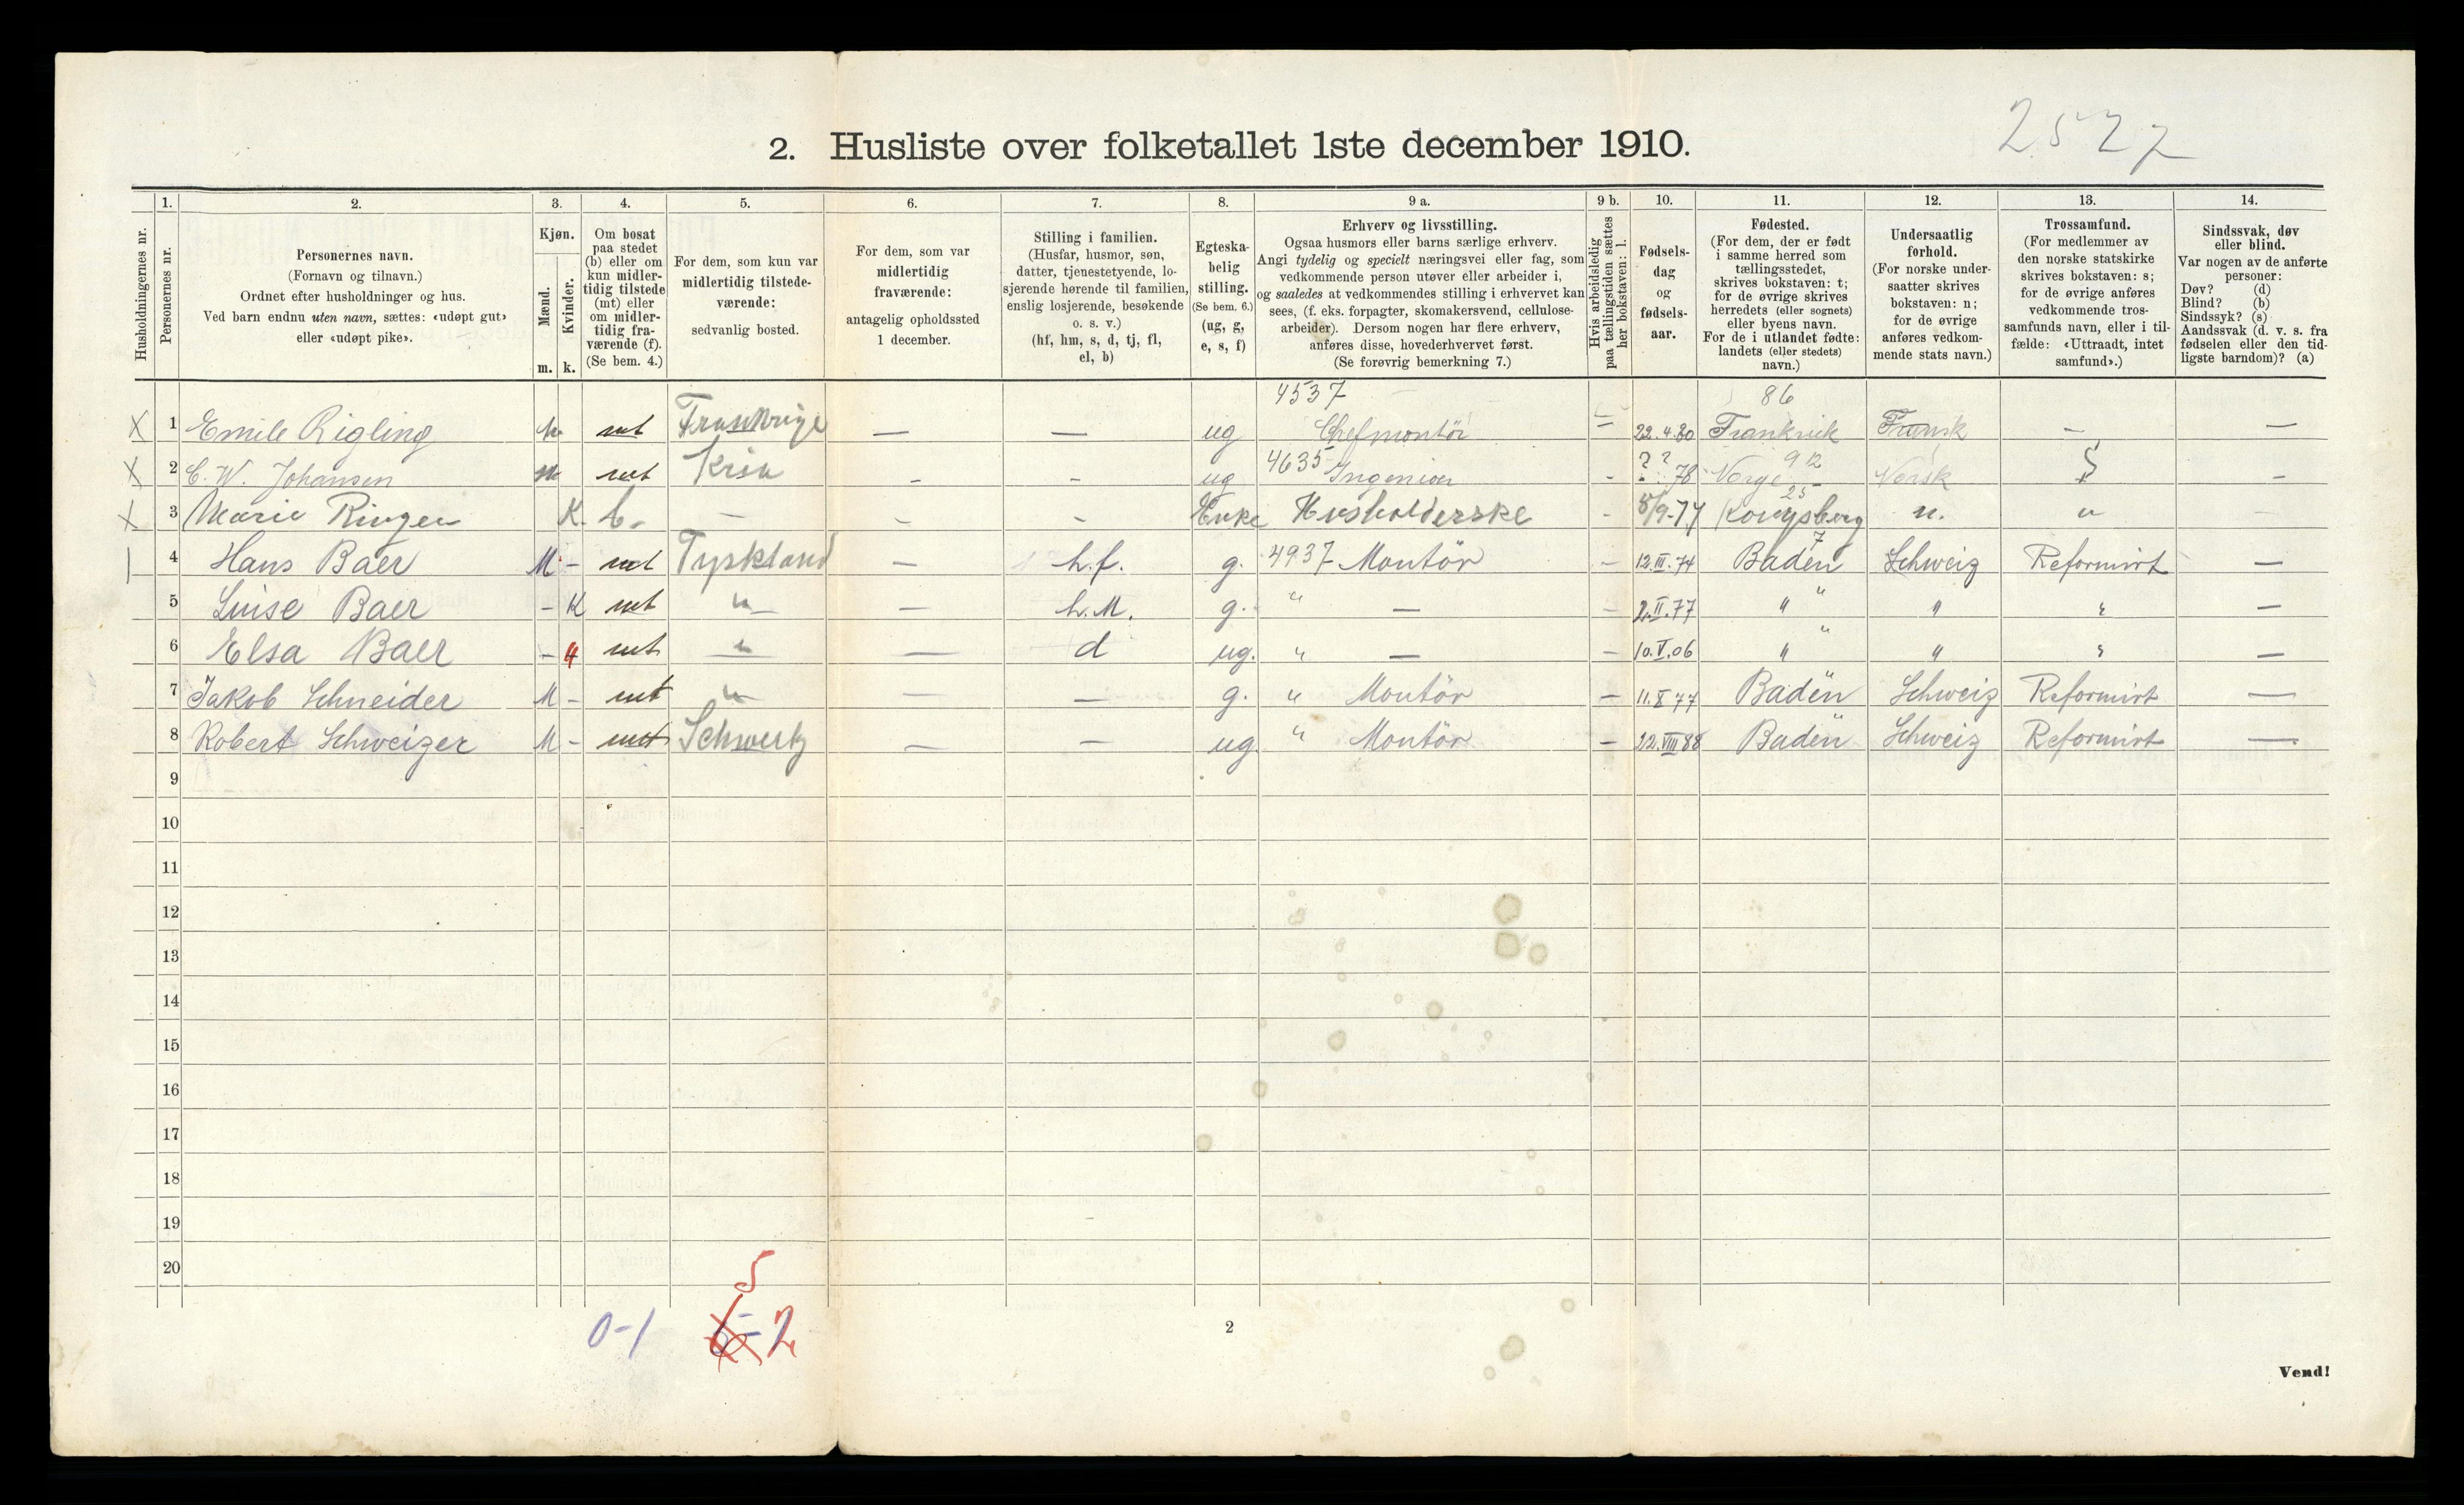 2522
2. Husliste over folketallet 1ste december 1910.
Husholdningernes nr.
1. Personernes nr.
2. Personernes navn.
(Fornavn og tilnavn.)
Ordnet efter husholdninger og hus.
Ved barn endnu uten navn, sættes: «udøpt gut»
eller «udøpt pike».
3. Kjøn.
Mænd. Kvinder.
m. k.
4. Om bosat
paa stedet
(b) eller om
kun midler-
tidig tilstede
(mt) eller
om midler-
tidig fra-
værende (f).
(Se bem. 4.)
5. For dem, som kun var
midlertidig tilstede-
værende:
sedvanlig bosted.
6. For dem, som var
midlertidig
fraværende:
antagelig opholdssted
1 december.
7. Stilling i familien.
(Husfar, husmor, søn,
datter, tjenestetyende, lo-
sjerende hørende til familien,
enslig losjerende, besøkende
o. s. v.)
(hf, hm, s, d, tj, fl,
el, b)
8. Egteska-
belig
stilling.
(Se bem. 6.)
(ug, g,
e, s, f)
9 a. Erhverv og livsstilling.
Ogsaa husmors eller barns særlige erhverv.
Angi tydelig og specielt næringsvei eller fag, som
vedkommende person utøver eller arbeider i,
og saaledes at vedkommendes stilling i erhvervet kan
sees, (f. eks. forpagter, skomakersvend, cellulose-
arbeider). Dersom nogen har flere erhverv,
anføres disse, hovederhvervet først.
(Se forøvrig bemerkning 7.)
9 b. Hvis arbeidsledig
paa tællingstiden sættes
her bokstaven: l.
10. Fødsels-
dag
og
fødsels-
aar.
11. Fødested.
(For dem, der er født
i samme herred som
tællingsstedet,
skrives bokstaven: t;
for de øvrige skrives
herredets (eller sognets)
eller byens navn.
For de i utlandet fødte:
landets (eller stedets)
navn.)
12. Undersaatlig
forhold.
(For norske under-
saatter skrives
bokstaven: n;
for de øvrige
anføres vedkom-
mende stats navn.)
13. Trossamfund.
(For medlemmer av
den norske statskirke
skrives bokstaven: s;
for de øvrige anføres
vedkommende tros-
samfunds navn, eller i til-
fælde: «Uttraadt, intet
samfund».)
14. Sindssvak, døv
eller blind.
Var nogen av de anførte
personer:
Døv? (d)
Blind? (b)
Sindssyk? (s)
Aandssvak (d. v. s. fra
fødselen eller den tid-
ligste barndom)? (a)
4537 86
X 1 Emile Rigling m mt Frankrige — — ug Chefmontör = 22.4.80 Frankrik Fransk — —
4635 ? ? 912
X 2 C. W. Johansen m mt Kria - - ug Ingeniør - 78 Norge Norsk -
25
X 3 Marie Ringen K. b. — - - Enke Husholderske - 8/9-77 Kongsberg n. "
7
| 4 Hans Baer M - mt Tyskland — h.f. g. 4937 Montör - 12.III.74 Baden Schweiz Reformirt —
5 Luise Baer - K mt " — h.M. g. " — - 2.II.77 " " " —
6 Elsa Baer - 4 mt " — d ug. " — - 10.V.06 " " " —
7 Jakob Schneider M - mt " — — g. " Montör - 11.X 77 Baden Schweiz Reformirt —
8 Robert Schweizer M - mt Schweitz — — ug " Montör - 22.VIII 88 Baden Schweiz Reformirt —
9
10
11
12
13
14
15
16
17
18
19
20
5
0-1 6-2
2
Vend!